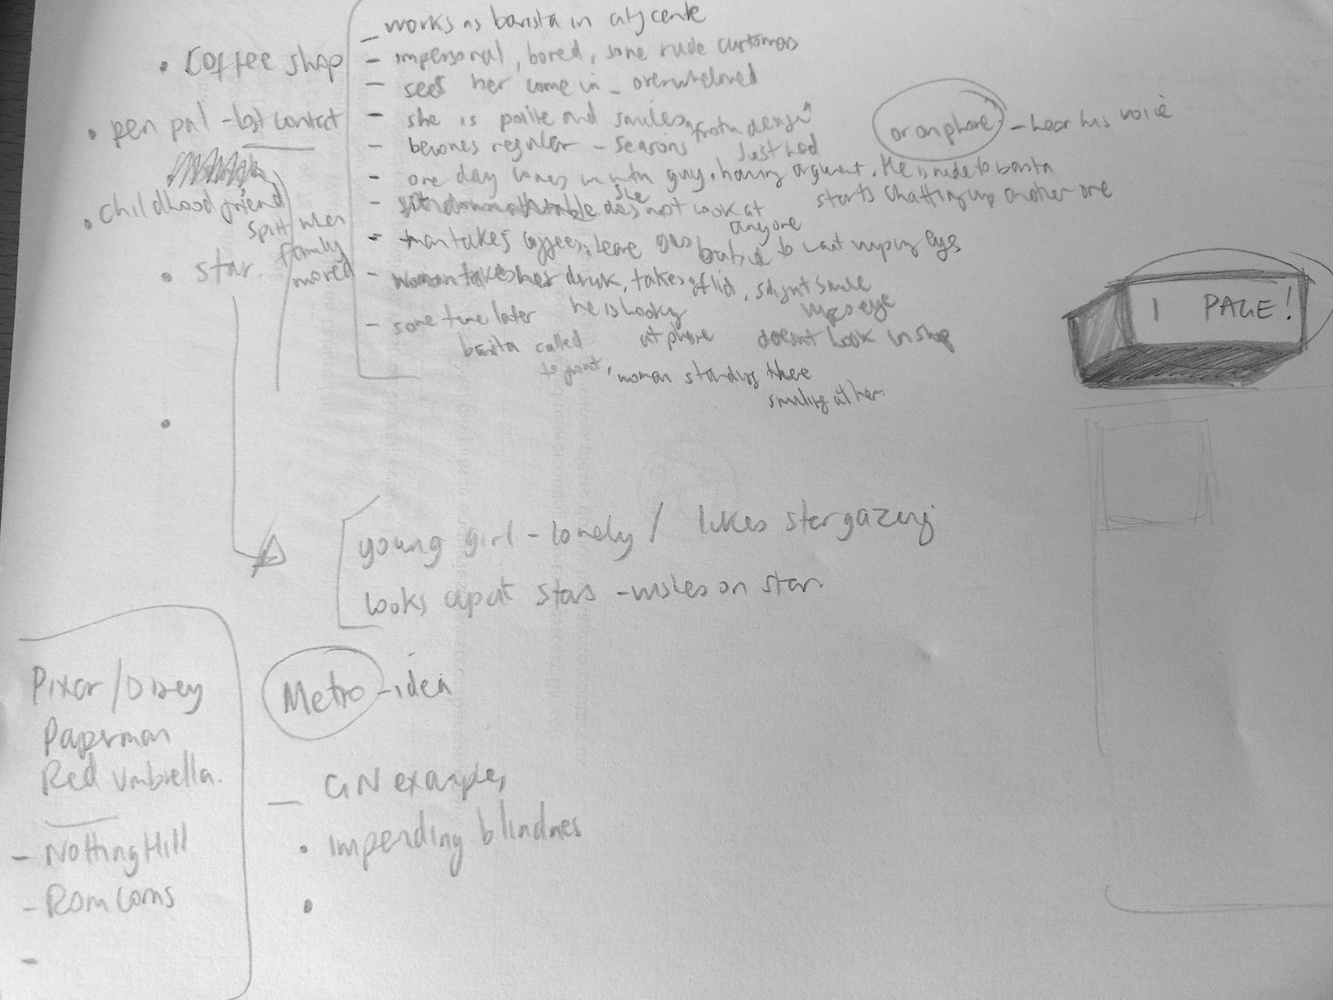 works as barista in city centre
• Coffee shop
- impersonal, bored, some rude customers
- sees her come in - overwhelmed
• pen pal - lost contact
- she is polite and smiles, froth design
or on phone - hear his voice
- becomes regular - seasons
just had
- one day comes in with guy, having argument. He is rude to barista
• childhood friend
split when family moved
she does not look at anyone
starts chatting up another one
- man takes coffees, leave
but to wait wiping eyes
• star.
- woman takes her drink, takes off lid, slight smile
wipes eye
1 PAGE!
- some time later
he is looking at phone
doesn't look in shop
barista called to front, woman standing there
smiling at her.
young girl - lonely / likes stargazing
looks up at stars - wishes on star.
Pixar/Disney
Paperman
Red Umbrella.
- Notting Hill
- Rom Coms
-
Metro - idea
- GN examples
• impending blindness
•